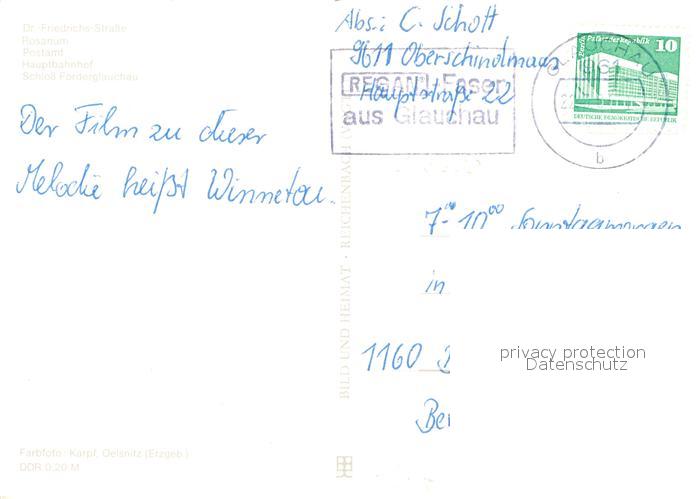 Dr.-Friedrichs-Straße
Rosarium
Postamt
Hauptbahnhof
Schloß Forderglauchau
Der Film zu dieser
Melodie heißt Winnetou.
Farbfoto: Karpf, Oelsnitz (Erzgeb.)
DDR 0,20 M
BILD UND HEIMAT · REICHENBACH
Abs.: C. Schott
9611 Oberschindlmaas
Hauptstraße 22
REGAN Faser
aus Glauchau
GLAUCHAU
961
b
Berlin Palast der Republik 10
DEUTSCHE DEMOKRATISCHE REPUBLIK
7⁰⁰-10⁰⁰ Sonntagmorgen
in
1160
Ber
privacy protection
Datenschutz